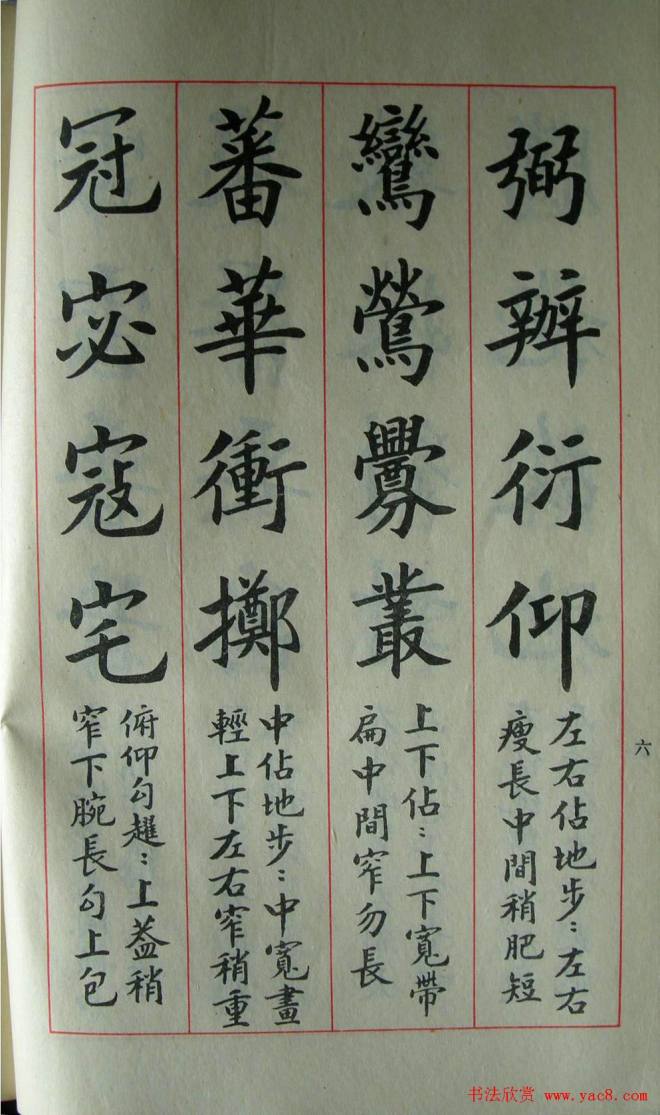 弼辦衍仰
左右佔地步:左右
瘦長中間稍肥短
鸞鶯爨叢
上下佔:上下寬帶
扁中間窄勿長
蕃華衝擲
中佔地步:中寬畫
輕上下左右窄稍重
冠宓寇宅
俯仰勾趯:上蓋稍
窄下腕長勾上包
六
书法欣赏 www.yac8.com